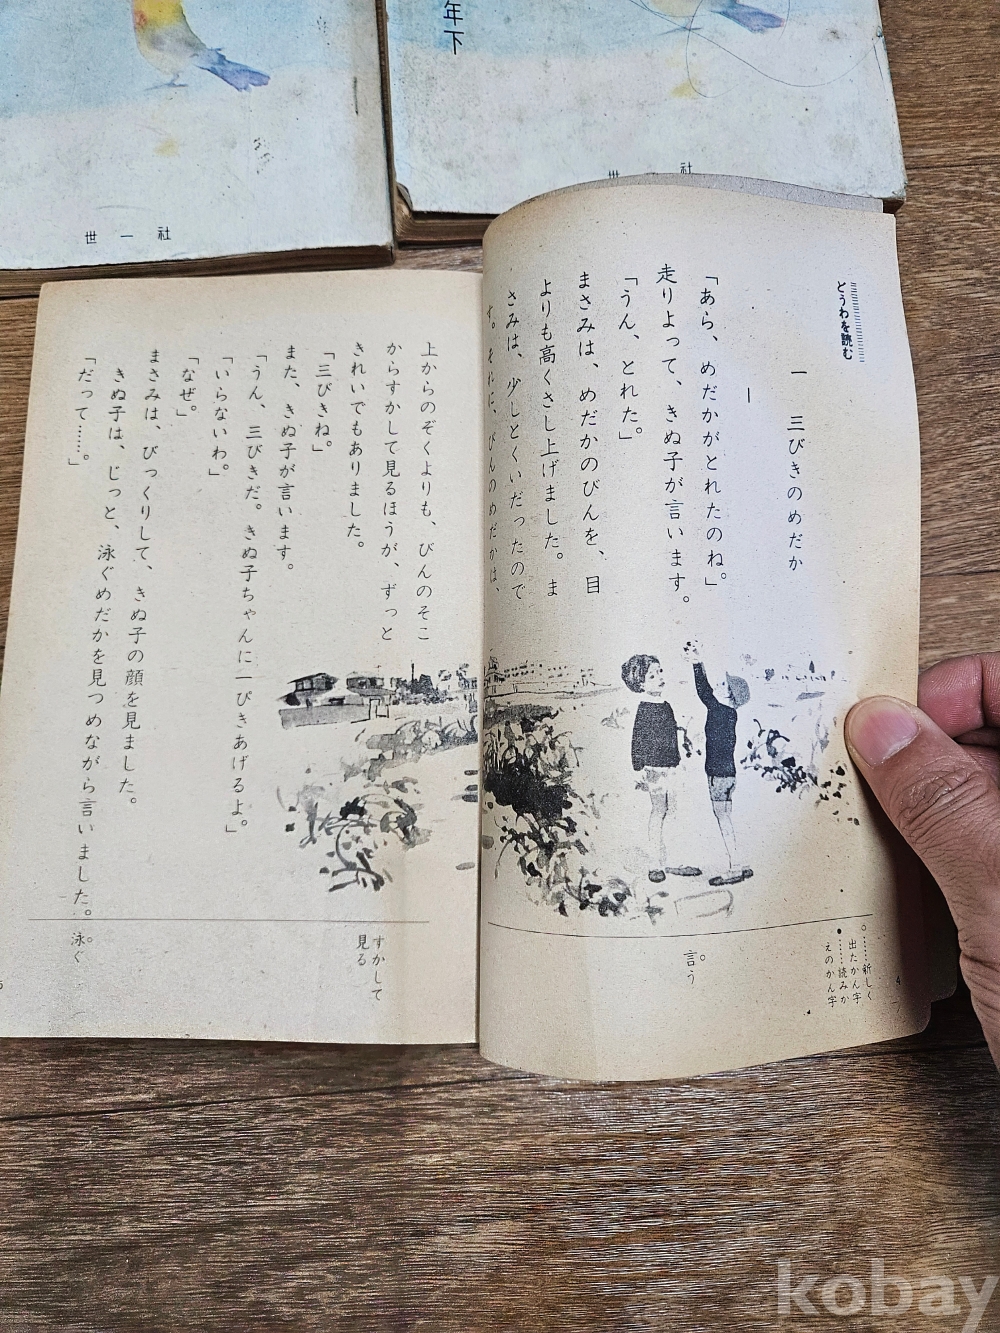 年下
世一社
世一社
どうわを読む
一 三びきのめだか
一
「あら、めだかがとれたのね。」
走りよって、きぬ子が言います。
「うん、とれた。」
まさみは、めだかのびんを、目
よりも高くさし上げました。ま
さみは、少しとくいだったので
す。それに、びんのめだかは、
言う
○……新しく
出たかん字
●……読みか
えのかん字
4
上からのぞくよりも、びんのそこ
からすかして見るほうが、ずっと
きれいでもありました。
「三びきね。」
また、きぬ子が言います。
「うん、三びきだ。きぬ子ちゃんに一ぴきあげるよ。」
「いらないわ。」
「なぜ。」
まさみは、びっくりして、きぬ子の顔を見ました。
きぬ子は、じっと、泳ぐめだかを見つめながら言いました。
「だって……。」
すかして
見る
泳ぐ
kobay